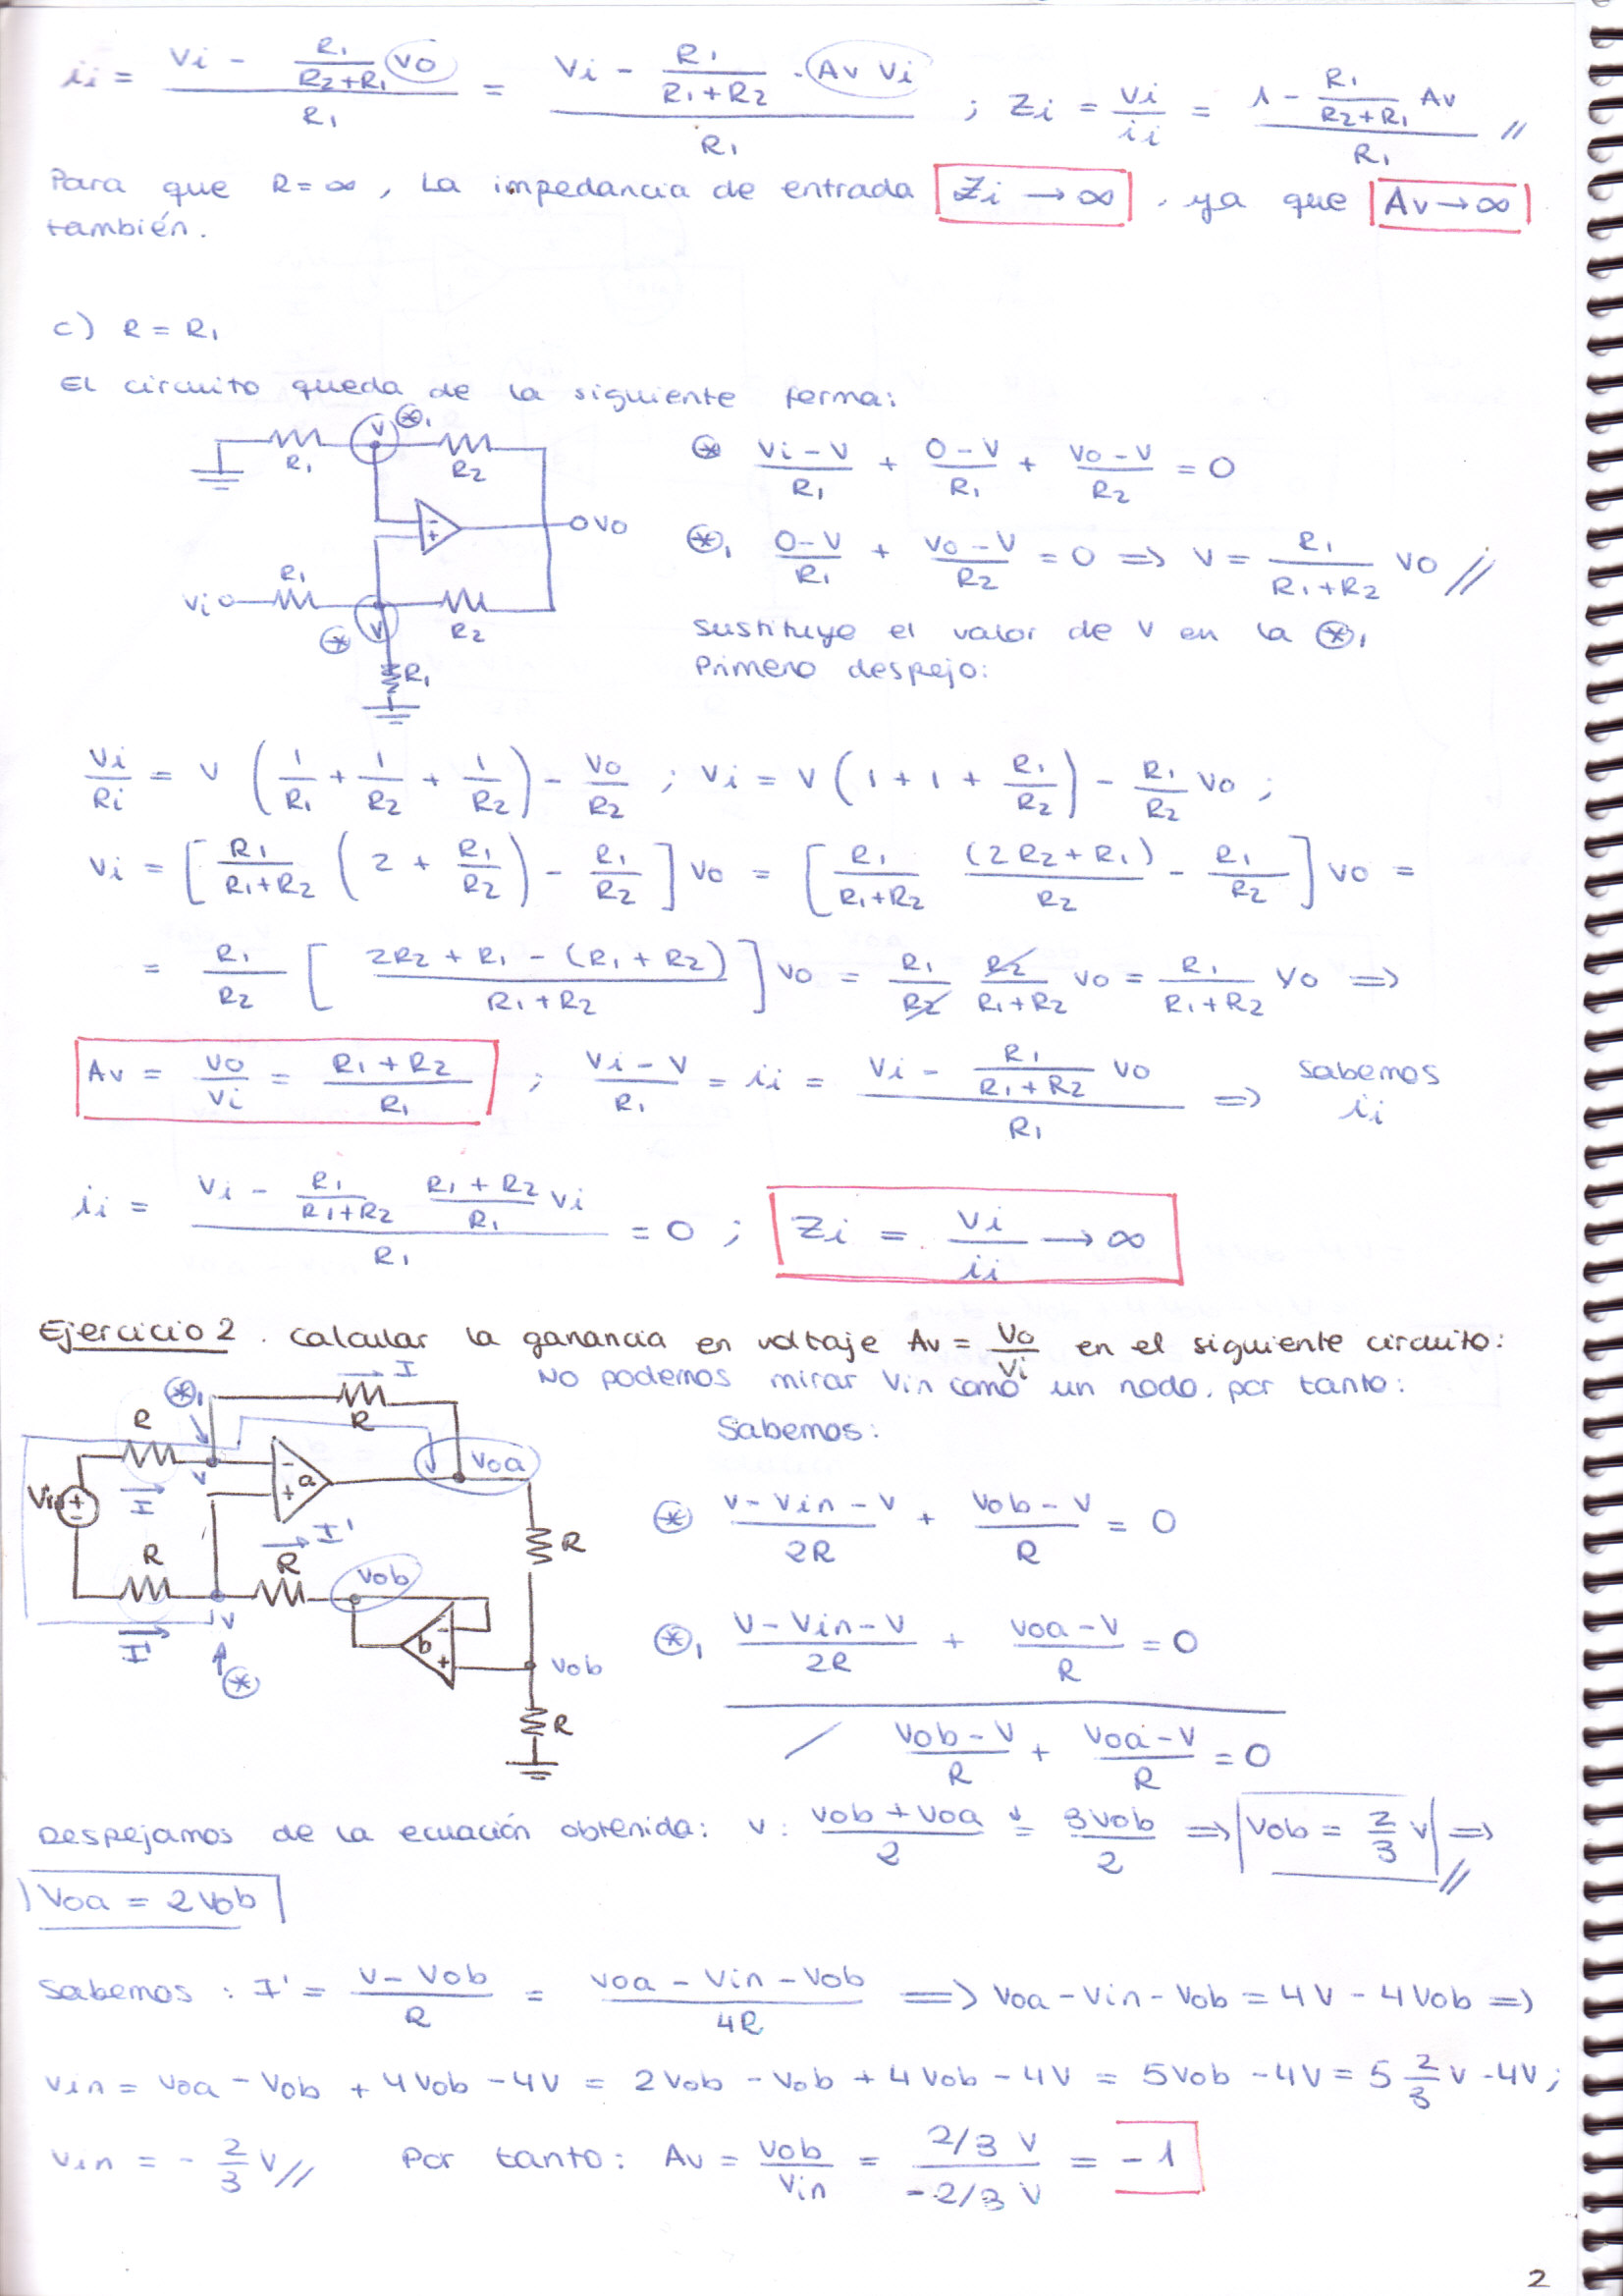 ii = (Vi - R1/(R2+R1) Vo)/R1 = (Vi - R1/(R1+R2) · Av Vi)/R1 ; Zi = Vi/ii = (1 - R1/(R2+R1) Av)/R1 //
Para que R=∞, La impedancia de entrada Zi → ∞, ya que Av → ∞
también.
c) R = R1
El circuito queda de la siguiente forma:
R1 V ⊛1 R2
- +
Vo
Vi R1 V R2
⊛
R1
⊛ (Vi - V)/R1 + (0 - V)/R1 + (Vo - V)/R2 = 0
⊛1 (0 - V)/R1 + (Vo - V)/R2 = 0 => V = R1/(R1+R2) Vo //
Sustituyo el valor de V en la ⊛1
Primero despejo:
Vi/Ri = V (1/R1 + 1/R2 + 1/R2) - Vo/R2 ; Vi = V (1 + 1 + R1/R2) - R1/R2 Vo ;
Vi = [R1/(R1+R2) (2 + R1/R2) - R1/R2] Vo = [R1/(R1+R2) (2R2+R1)/R2 - R1/R2] Vo =
= R1/R2 [(2R2 + R1 - (R1+R2))/(R1+R2)] Vo = R1/R2 R2/(R1+R2) Vo = R1/(R1+R2) Vo =>
Av = Vo/Vi = (R1+R2)/R1 ; (Vi - V)/R1 = ii = (Vi - R1/(R1+R2) Vo)/R1 => Sabemos
ii
ii = (Vi - R1/(R1+R2) (R1+R2)/R1 Vi)/R1 = 0 ; Zi = Vi/ii → ∞
Ejercicio 2. Calcular la ganancia en voltaje Av = Vo/Vi en el siguiente circuito:
No podemos mirar Vin como un nodo, por tanto:
I
⊛1 R
R V - a + Voa
Vin + - I
I'
R R R
Vob
V I'
⊛
b - + Vob
R
Sabemos:
⊛ (V - Vin - V)/2R + (Vob - V)/R = 0
⊛1 (V - Vin - V)/2R + (Voa - V)/R = 0
/ (Vob - V)/R + (Voa - V)/R = 0
Despejamos de la ecuación obtenida: V: (Vob + Voa)/2 = 3Vob/2 => Vob = 2/3 V => //
Voa = 2Vob
Sabemos : I' = (V - Vob)/R = (Voa - Vin - Vob)/4R => Voa - Vin - Vob = 4V - 4Vob =>
Vin = Voa - Vob + 4Vob - 4V = 2Vob - Vob + 4Vob - 4V = 5Vob - 4V = 5 2/3 V - 4V ;
Vin = - 2/3 V // Por tanto: Av = Vob/Vin = (2/3 V)/(-2/3 V) = -1
2